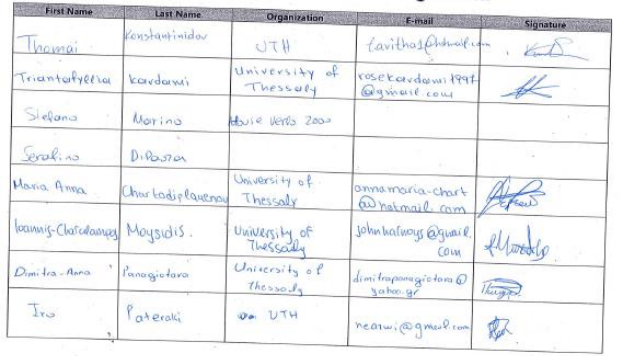 First Name Last Name Organization E-mail Signature
Thomai Konstantinidou UTH
Triantafyllia Kardami University of Thessaly rosekardami1997@gmail.com
Stefano Marino Movie Verlo 2000
Serafino
Maria Anna University of Thessaly annamaria-chart@hotmail.com
Ioannis-Charalampos Moysidis. University of Thessaly johnhalways@gmail.com
Dimitra-Anna Panagiotara University of Thessaly dimitrapanagiotara@yahoo.gr
Iro Pateraki UTH nearwi@gmail.com